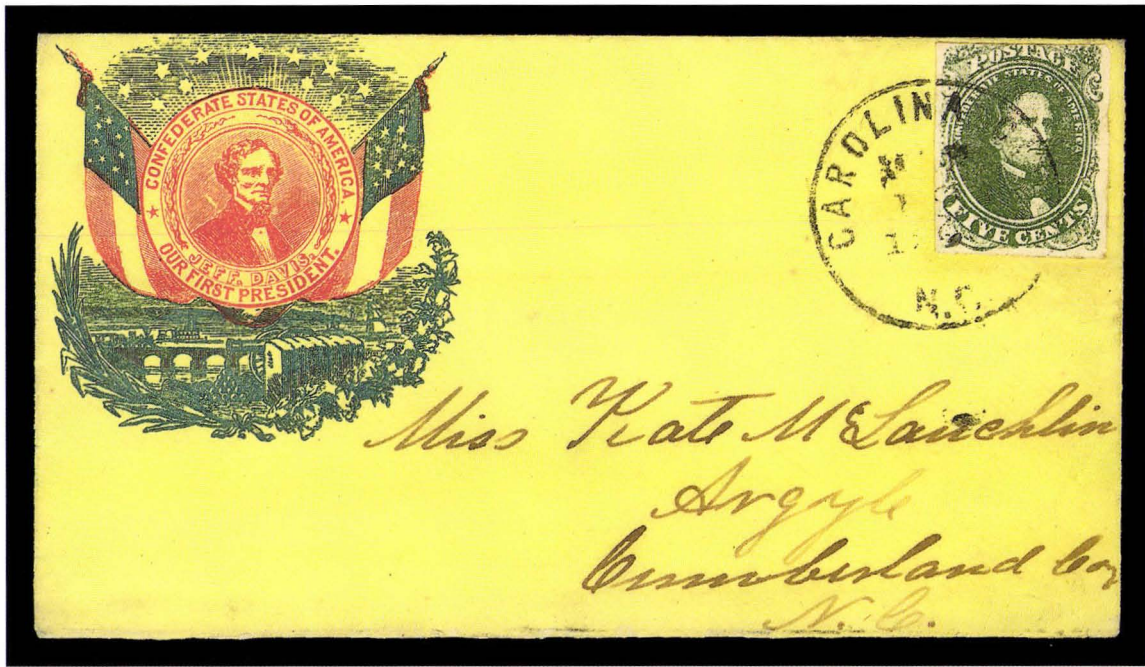 CONFEDERATE STATES OF AMERICA.
JEFF. DAVIS.
OUR FIRST PRESIDENT.
POSTAGE
CONFEDERATE STATES OF AMERICA
FIVE CENTS
CAROLINA
N.C.
Miss Kate McLauchlin
Argyle
Cumberland Coy
N. C.